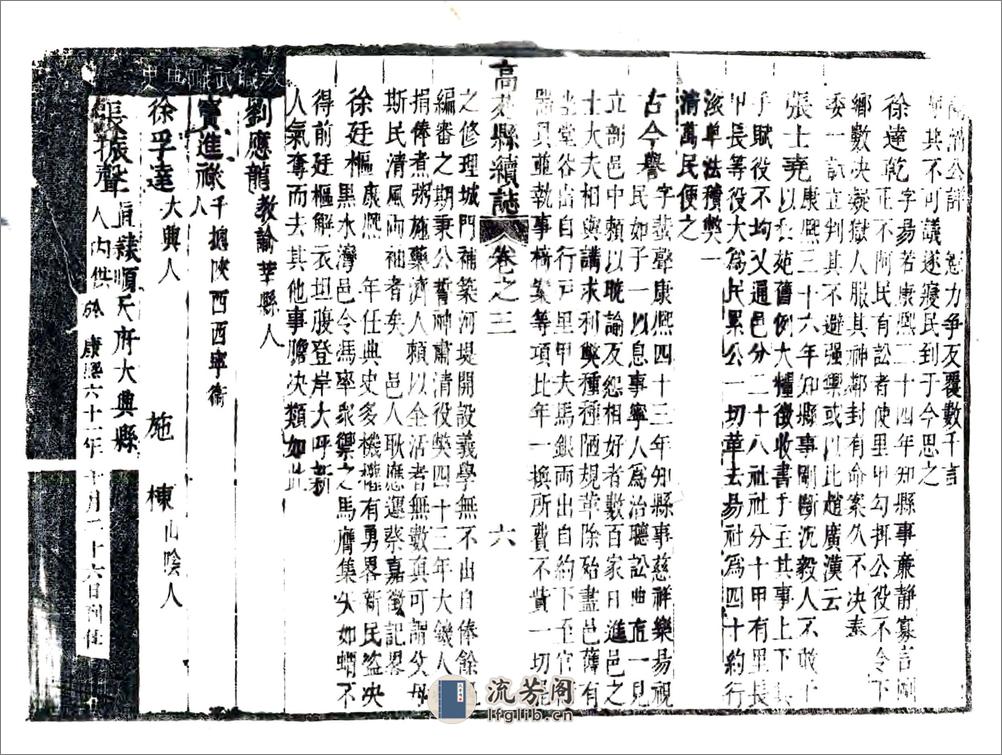 諸公評 力爭反覆數千言
其不可議遂寢民到于今思之
徐達乾字易若康熙二十四年知縣事廉靜寡言剛
正不阿民有訟者使里甲勾攝公役不令下
鄉數決疑獄人服其神鄰封有命案久不決奉
委一訊立判其不避强禦或以比趙廣漢云
張士堯康熙三十六年知縣事剛斷沉毅人不敢干
以私苑舊例大糧徵收書手主其事上下其
手賦役不均又通邑分二十八社社分十甲有里長
甲長等役大爲民累公一切革去易社爲四十約行
滾单法積弊一
清萬民便之
古今譽字蜚聲康熙四十三年知縣事慈祥樂易視
民如子一以息事寧人爲治聽訟曲直一見
立剖邑中賴以晚諭及怨相好者數百家日進邑之
士大夫相與講求利獘種種陋規革除殆盡邑舊有
坐堂谷出自行戸里甲夫馬銀両出自約下至官衙
器具並執事棹案等項比年一換所費不貲一切
高苑縣續誌 卷之三 六
之修理城門補築河堤開設義學無不出自俸餘
編審之期秉公誓神肅清役獘四十三年大饑人
捐俸煮粥施藥濟人賴以全活者無數真可謂父母
斯民清風両袖者矣 邑人耿應選蔡嘉徵記畧
徐廷樞康熙 年任典史多機權有勇畧新民盜决
黑水灣邑令馮率衆禦之馬膺集矢如蝟不
得前廷樞解衣坦腹登岸大呼新
人氣奪而去其他事膽决類如此
劉應龍教諭莘縣人
竇進祿千摠陝西西寧衛
人
徐孚達大興人 施棟山陰人
張振聲直隸順天府大興縣
人內供 康熙六十一年十月二十六日到任
流芳阁
lfglib.cn